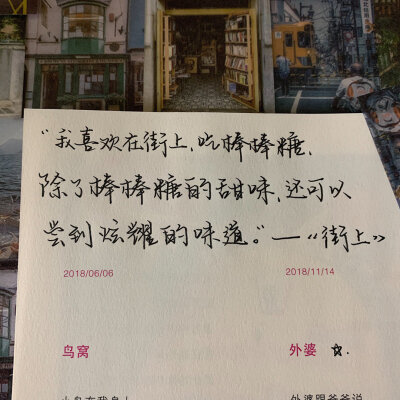 “我喜欢在街上,吃棒棒糖,
除了棒棒糖的甜味,还可以
尝到炫耀的味道。”—《街上》
2018/06/06
2018/11/14
鸟窝
外婆 ☆.
外婆跟爷爷说